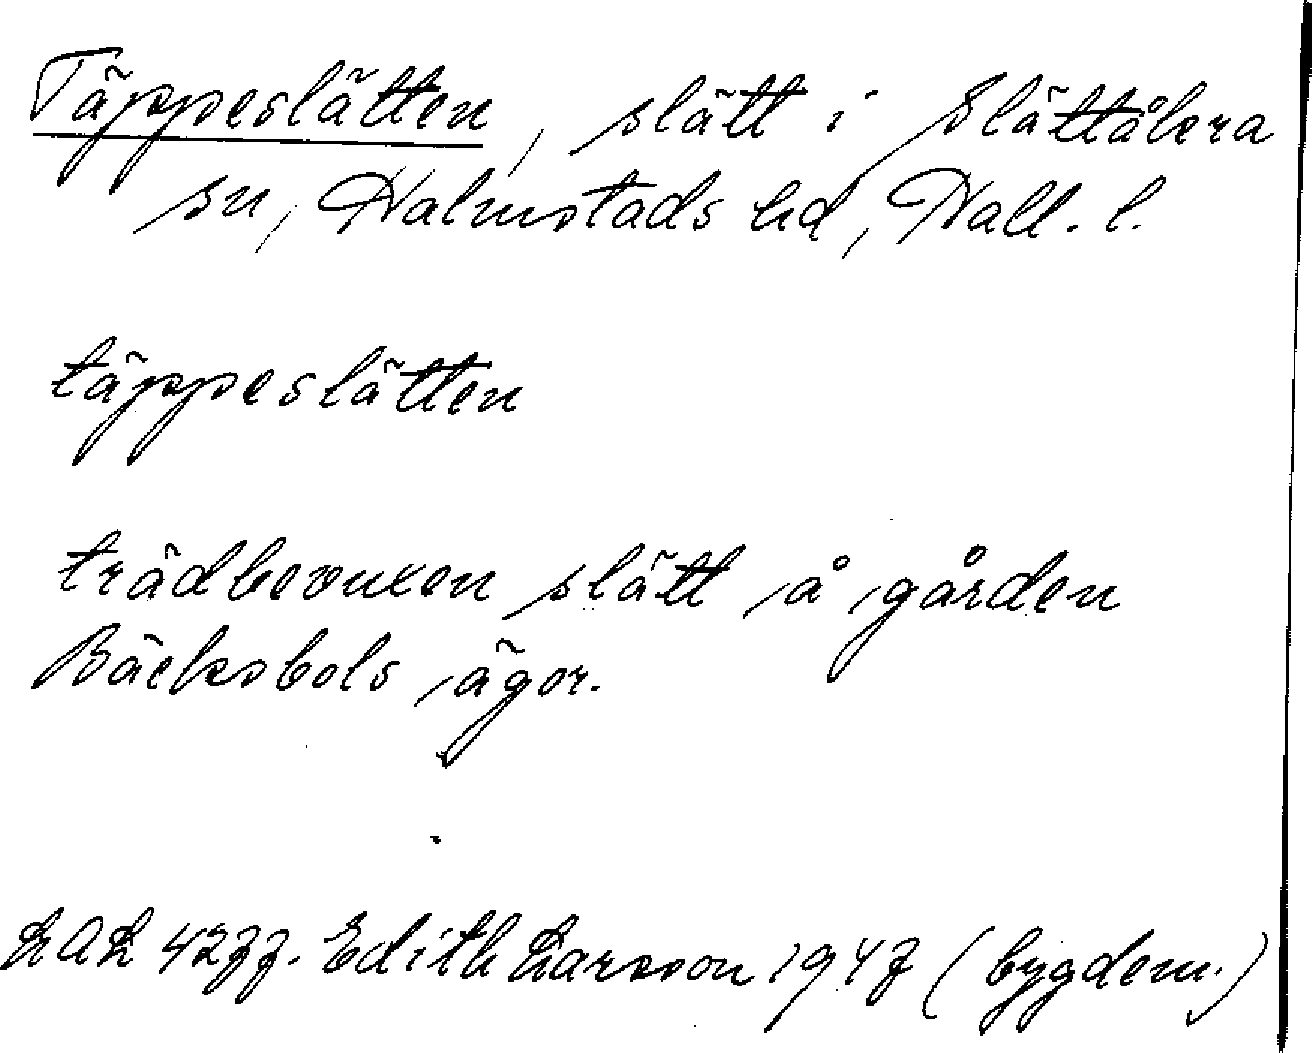 Täppeslätten, slätt i Slättåkra
sn, Halmstads hd, Hall. l.
täppeslätten
trädbevuxen slätt å gården
Bäcksbols ägor.
LAL 4277. Edith Larsson 1947 (bygdem.)